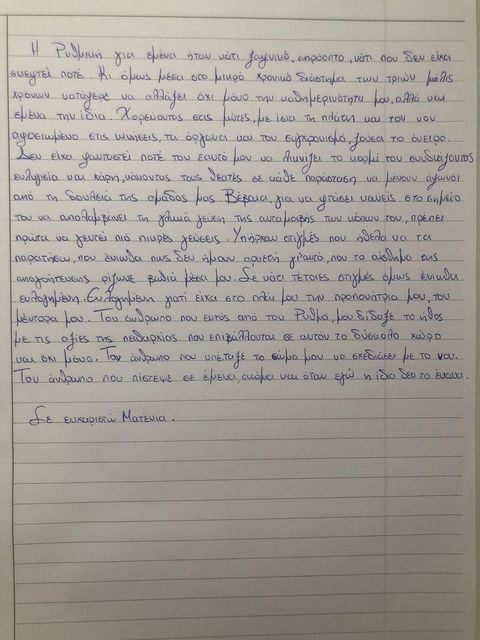 Η Ρυθμική για εμένα ήταν κάτι ξαφνικό, απρόοπτο, κάτι που δεν είχα
σκεφτεί ποτέ. Κι όμως μέσα στο μικρό χρονικό διάστημα των τριών μόλις
χρόνων κατάφερε να αλλάξει όχι μόνο την καθημερινότητα μου, αλλά και
εμένα την ίδια. Χορεύοντας στις μύτες, με ίσια τη πλάτη και τον νου
αφοσιωμένο στις κινήσεις, τα όργανα και τον συγχρονισμό, ζούσα το όνειρο.
Δεν είχα φανταστεί ποτέ τον εαυτό μου να λυγίζει το κορμί του συνδιάζοντας
ευλυγισία και χάρη, κάνοντας τους θεατές σε κάθε παράσταση να μένουν άφωνοι
από τη δουλειά της ομάδας μας. Βέβαια, για να φτάσει κανείς στο σημείο
του να απολαμβάνει τη γλυκιά γεύση της ανταμοιβής των κόπων του, πρέπει
πρώτα να γευτεί πιο πικρές γεύσεις. Υπήρχαν στιγμές που ήθελα να τα
παρατήσω, που ένιωθα πως δεν ήμουν αρκετή γι'αυτό, που το αίσθημα της
απογοήτευσης ρίζωνε βαθιά μέσα μου. Σε κάτι τέτοιες στιγμές όμως ένιωθα
ευλογημένη. Ευλογημένη γιατί είχα στο πλέυ μου την προπονήτρια μου, τον
μέντορα μου. Τον άνθρωπο που εκτός από τον Ρυθμό, μου δίδαξε το ήθος
με τις αξίες της πειθαρχίας που επιβάλλονται σε αυτόν το δύσκολο χώρο
και όχι μόνο. Τον άνθρωπο που υπέταξε το σώμα μου να σχεδιάσει με το νου.
Τον άνθρωπο που πίστεψε σε έμενα, ακόμα και όταν εγώ η ίδια δεν το έκανα.
Σε ευχαριστώ Ματένια.